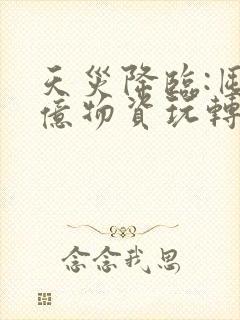 天災降臨:
億物資玩轉
念念我思